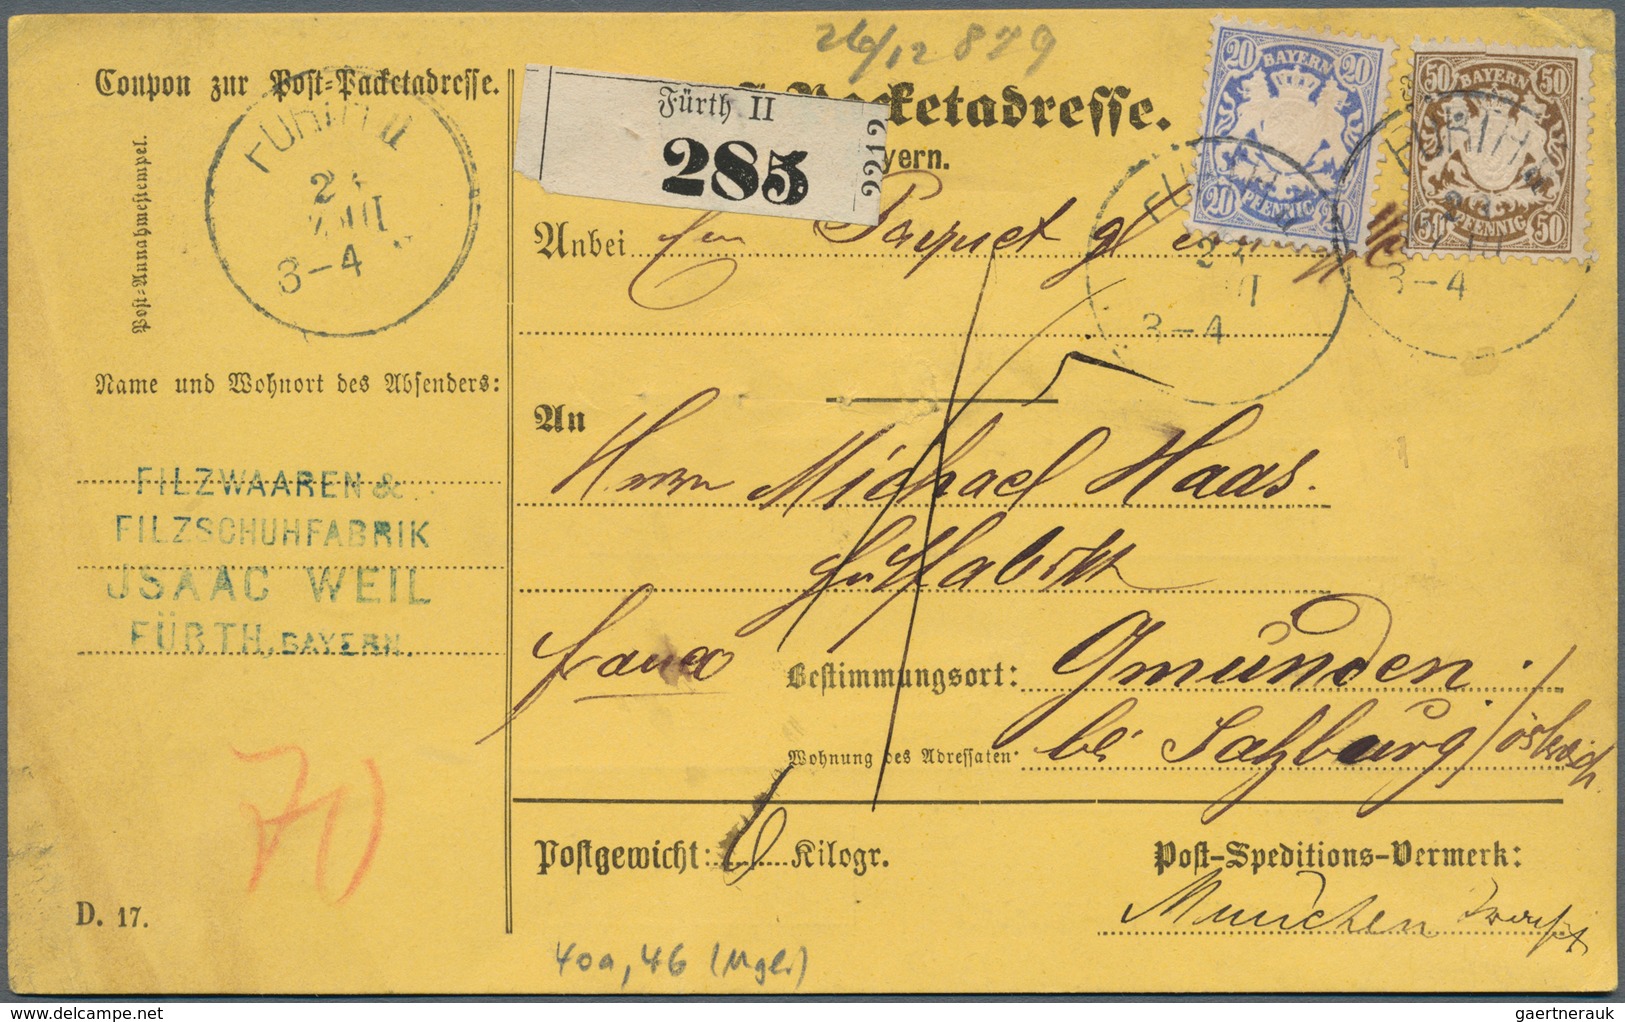 26/12 879
Coupon zur Post-Packetadresse.
Post-Annahmestempel.
FÜRTH II
2
XII
3-4
Name und Wohnort des Absenders:
FILZWAAREN &
FILZSCHUHFABRIK
JSAAC WEIL
FÜRTH, BAYERN.
70
D. 17.
Fürth II
285
2212
Packetadresse.
yern.
20 BAYERN 20
20 PFENNIG 20
50 BAYERN 50
50 PFENNIG 50
3-4
3-4
Anbei Ein Paquet
An
Herrn Michael Haas.
Hutfabrik
franco
Bestimmungsort: Gmünden.
Wohnung des Adressaten: bei Salzburg/östreich.
Postgewicht: 6 Kilogr.
Post-Speditions-Vermerk:
Munchen
40a, 46 (Mgl.)
gaertnerauk